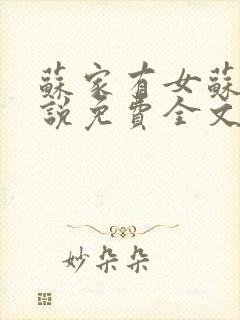 蘇家有女蘇
說免費全文
妙朵朵